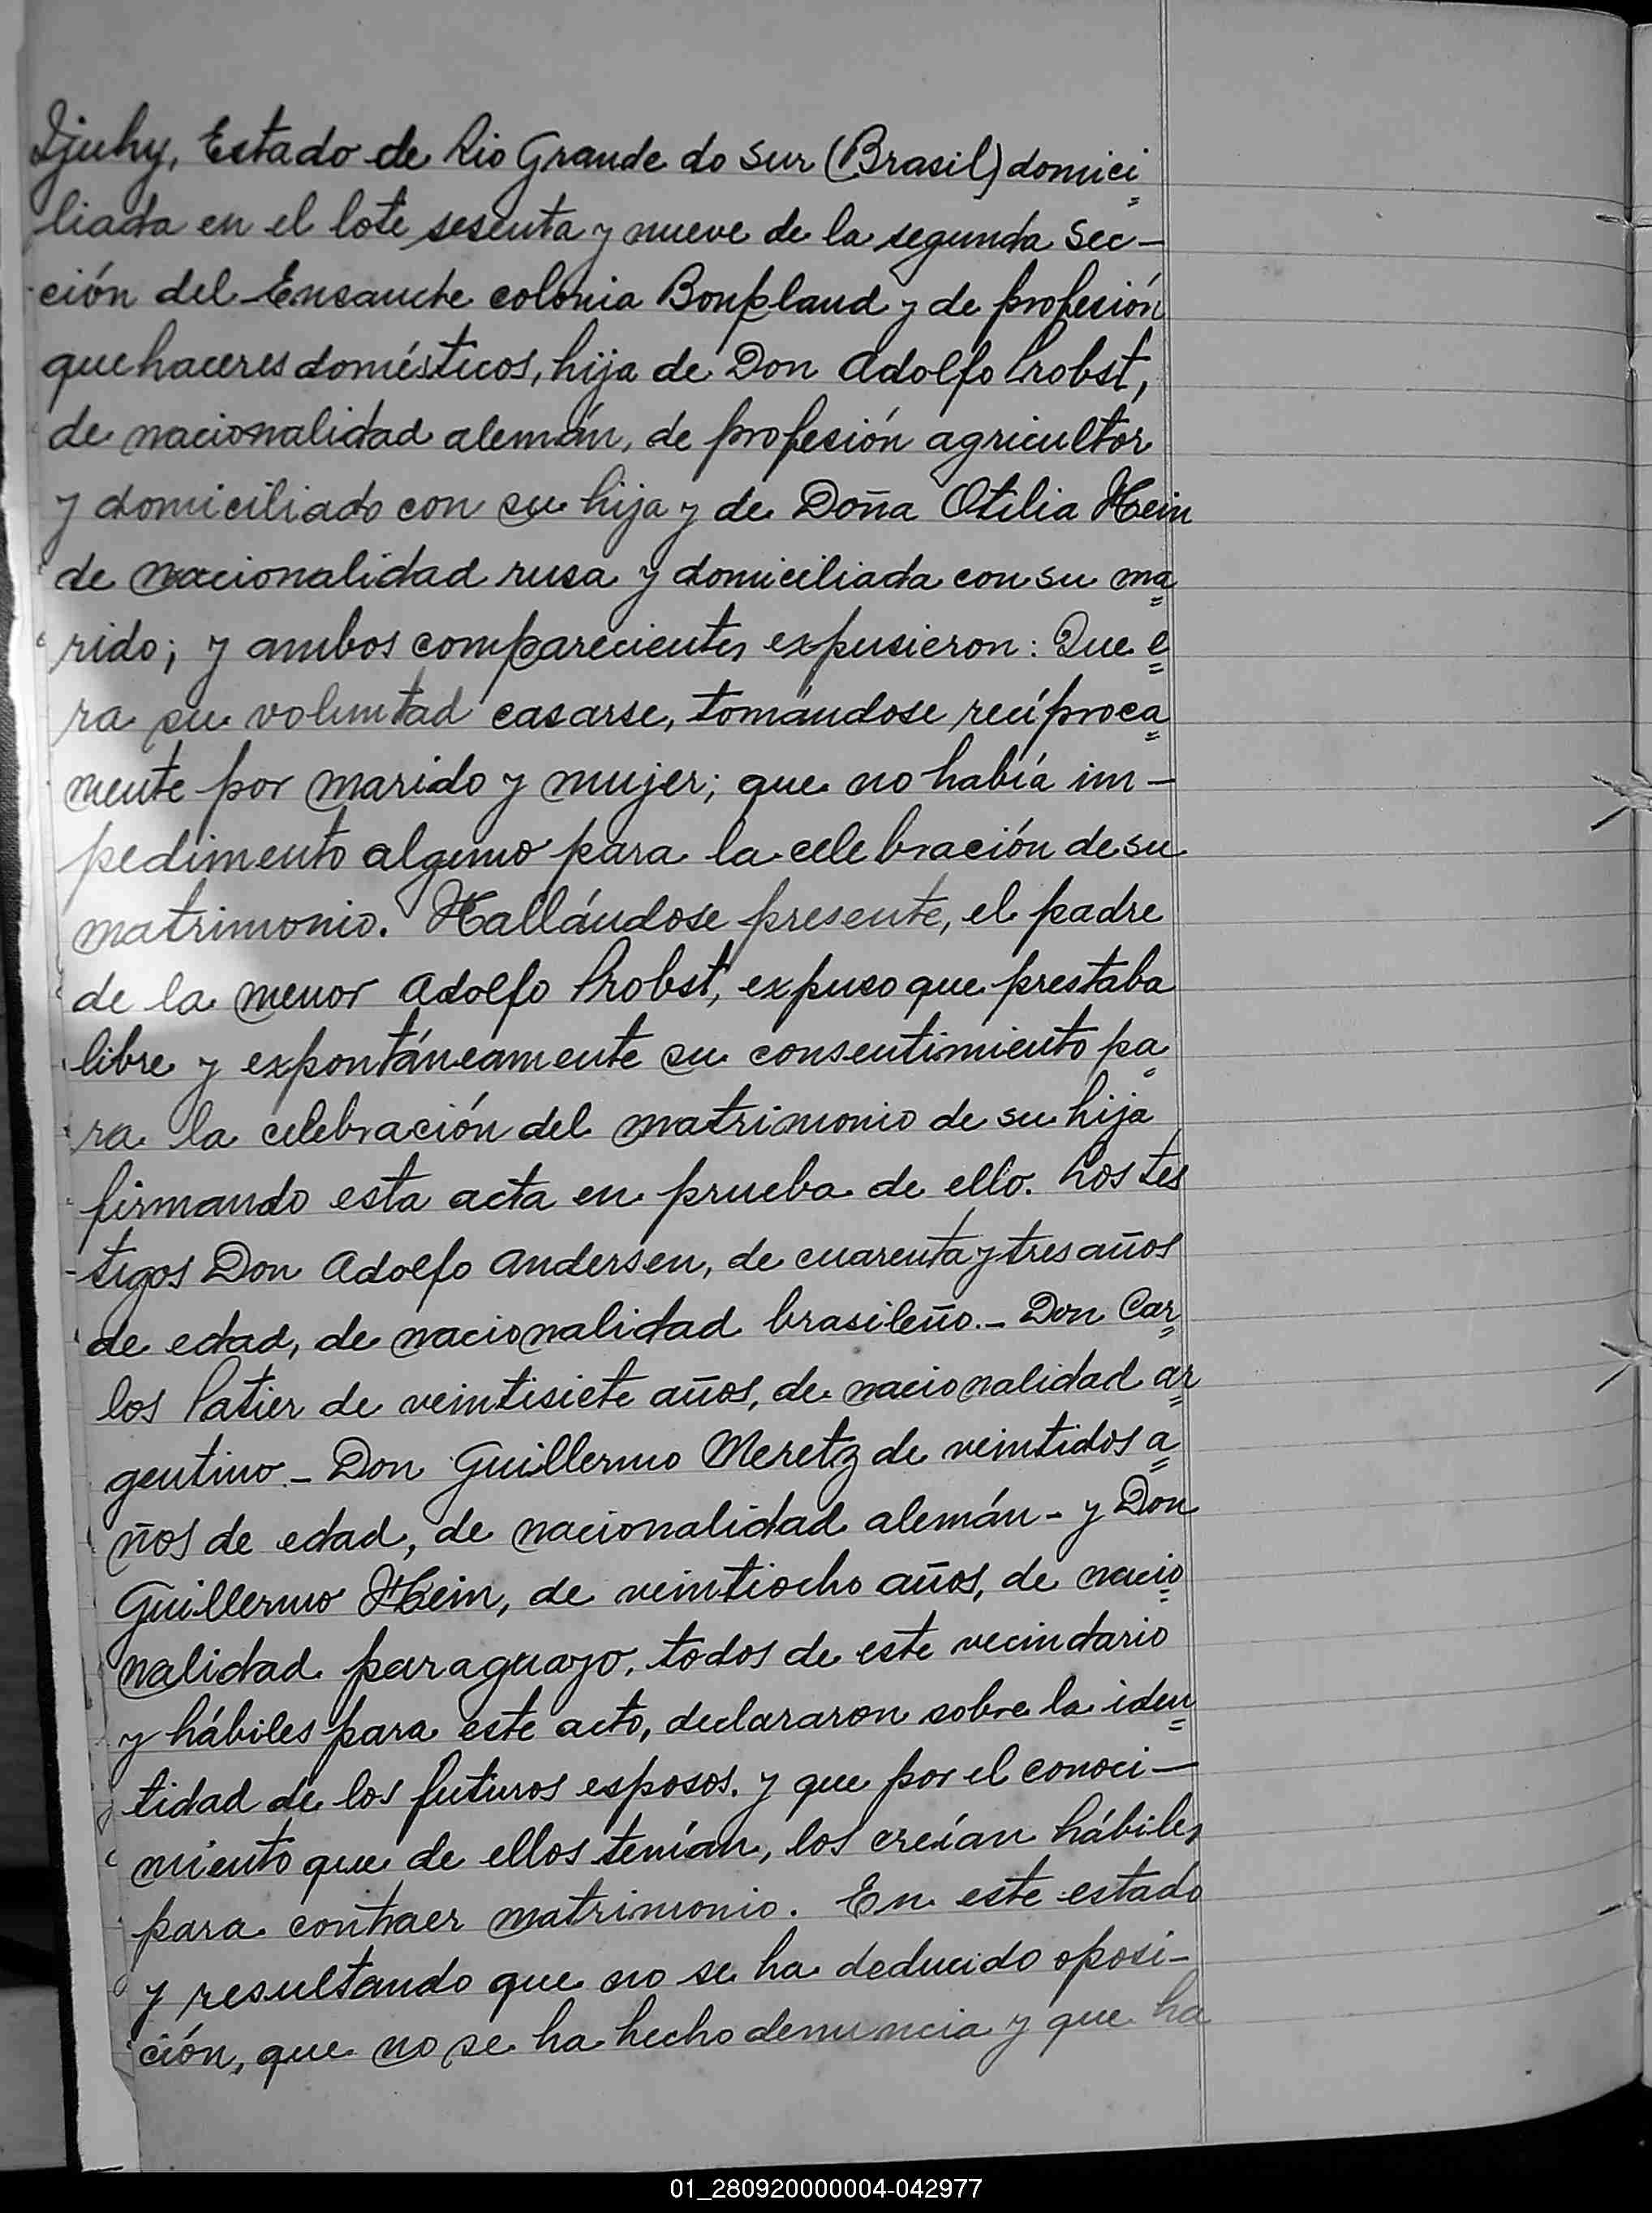 Ijuhy, Estado de Rio Grande do Sur (Brasil) domici=
liada en el lote sesenta y nueve de la segunda Sec-
ción del Ensanche colonia Bonpland y de profesión
quehaceres domésticos, hija de Don Adolfo Probst,
de nacionalidad alemán, de profesión agricultor
y domiciliado con su hija y de Doña Otilia Hein
de nacionalidad rusa y domiciliada con su ma=
rido; y ambos comparecientes expusieron: Que e=
ra su voluntad casarse, tomándose recíproca=
mente por marido y mujer; que no había im-
pedimento alguno para la celebración de su
matrimonio. Hallándose presente, el padre
de la menor Adolfo Probst, expuso que prestaba
libre y expontáneamente su consentimiento pa=
ra la celebración del matrimonio de su hija
firmando esta acta en prueba de ello. Los tes
tigos Don Adolfo Andersen, de cuarenta y tres años
de edad, de nacionalidad brasileño.- Don Car=
los Patier de veintisiete años, de nacionalidad ar=
gentino.- Don Guillermo Meretz de veintidos a=
ños de edad, de nacionalidad alemán- y Don
Guillermo Hein, de veintiocho años, de nacio=
nalidad paraguayo, todos de este vecindario
y hábiles para este acto, declararon sobre la iden=
tidad de los futuros esposos. y que por el conoci-
miento que de ellos tenían, los creían hábiles
para contraer matrimonio. En este estado
y resultando que no se ha deducido oposi-
ción, que no se ha hecho denuncia y que ha
01_280920000004-042977